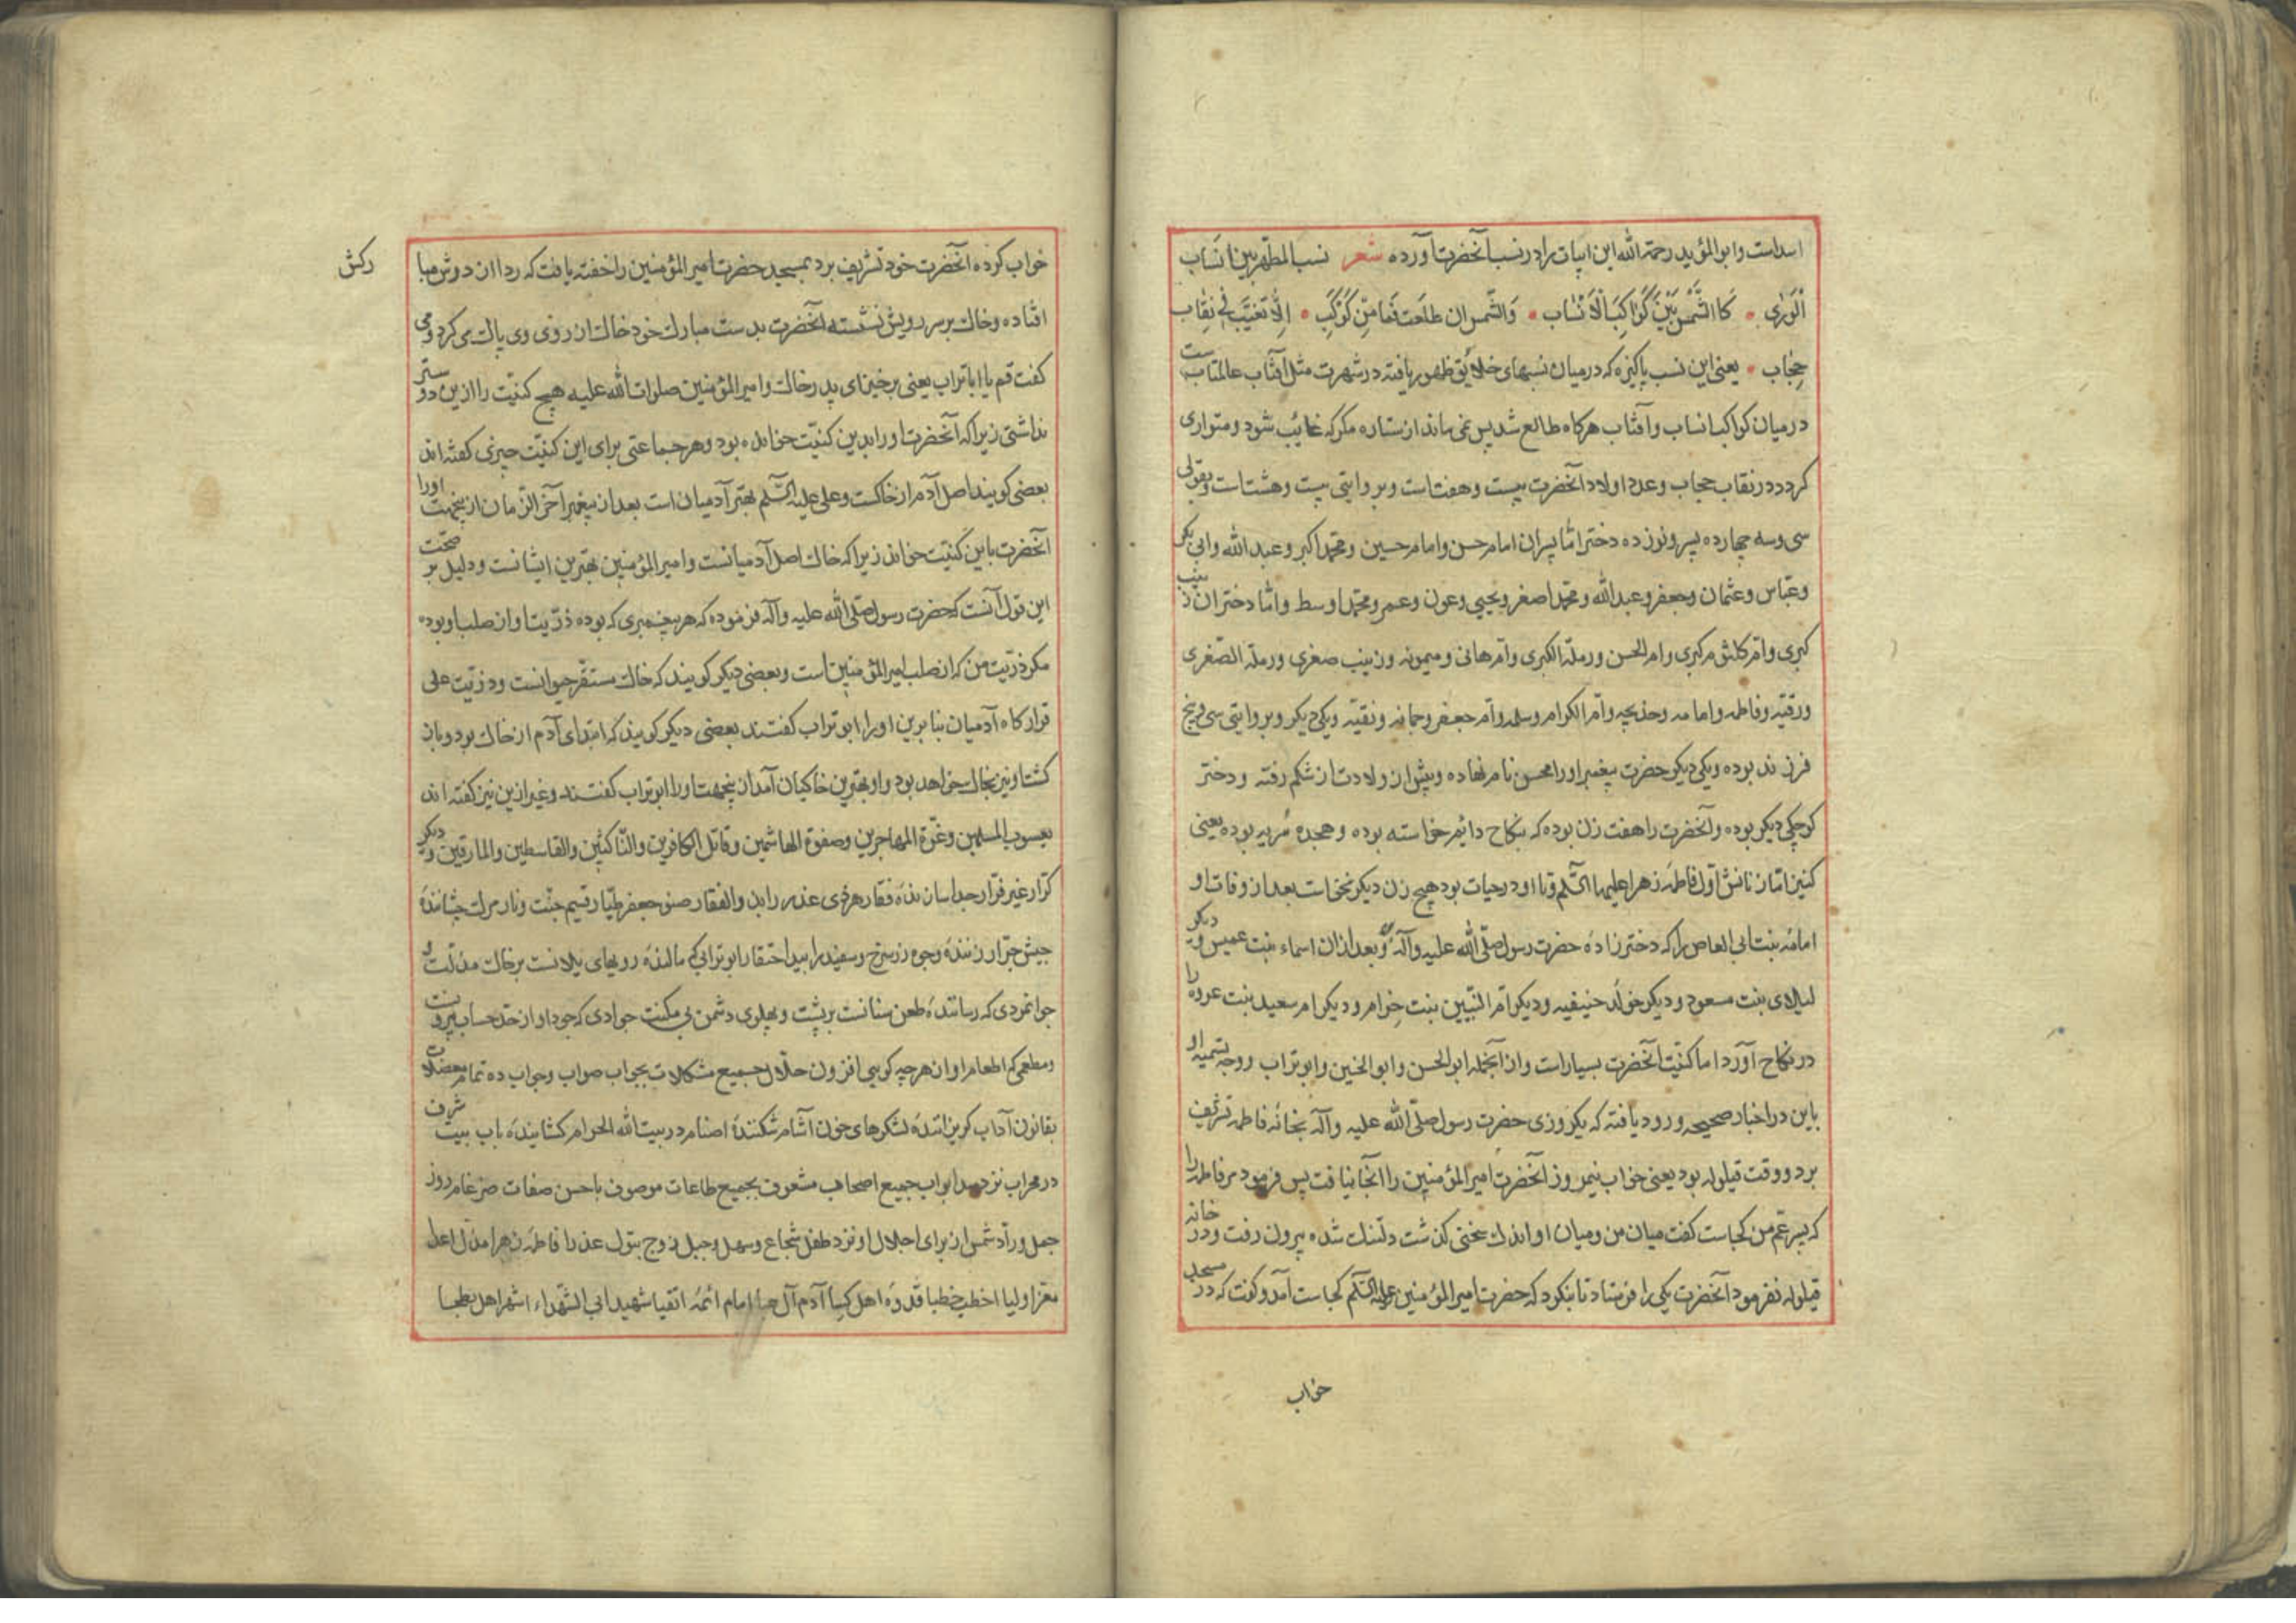 اسداست وابوالمؤید رحمة الله این ابیات را در نسب آنحضرت آورده شعر نسب المطهر بین انساب
الوری • کا الشمس بین کواکب الانساب • والشمس ان طلعت فما من کوکب • الا تغیب فی نقاب
حجاب • یعنی این نسب پاکیزه که درمیان نسبهای خلایق ظهور یافته در شهرت مثل آفتاب عالمتاب ست
درمیان کواکب انساب وآفتاب هرکاه طالع شد پس نمی ماند از ستاره مکر که غائب شود ومتواری
کردد در نقاب حجاب وعدد اولاد آنحضرت بیست وهفت است وبروایتی بیست وهشت است وبقولی
سی وسه چهارده پسر ونوزده دختر امّا پسران امام حسن وامام حسین ومحمّد اکبر وعبد الله وابی بکر
وعبّاس وعثمان وجعفر وعبدالله ومحمّد اصغر ویحیی وعون وعمر ومحمّد اوسط وامّا دختران زینب
کبری وامّ کلثوم کبری وام الحسن ورملة الکبری وامّ هانی ومیمونه وزینب صغری ورملة الصّغری
ورقیّه وفاطمه وامامه وخدیجه وامّ الکرام وسلمه وامّ جعفر وجمانه ونقیّه ویکی دیکر وبروایتی سی وپنج
فرزند بوده ویکی دیکر حضرت پیغمبر اورا محسن نام نهاده وپیش از ولادت از شکم رفته ودختر
کوچکی دیکر بوده وآنحضرت را هفت زن بوده که بنکاح دائم خواسته بوده وهجده سُریه بوده یعنی
کنیز امّا زنانش اوّل فاطمهٔ زهرا علیها السّلم وتا او در حیات بود هیچ زن دیکر نخواست بعد از وفات او
امامهٔ بنت ابی العاص را که دختر زادهٔ حضرت رسول صلّی الله علیه وآله وبعد ازان اسماء بنت عمیس ودیکر
لیلای بنت مسعود ودیکر خولهٔ حنیفیه ودیکر امّ النبّیین بنت خرام ودیکر ام سعید بنت عروه را
در نکاح آورد اما کنیّت آنحضرت بسیاراست وازآنجمله ابوالحسن وابو الحنین وابوتراب ووجه تسمیه او
باین در اخبار صحیحه ورود یافته که یکروزی حضرت رسول صلّی الله علیه وآله بخانهٔ فاطمه تشریف
برد ووقت قیلوله بود یعنی خواب نیمروز آنحضرت امیر المؤمنین را آنجا نیافت پس فرمود مر فاطمه را
که پسر عم من کجاست کفت میان من ومیان او اندک سخنی کذشت دلتنک شده بیرون رفت ودر خانه
قیلوله نفرمود آنحضرت یکی را فرستاد تا بنکرد که حضرت امیر المؤمنین علیه السّلم کجاست آمد وکفت که در مسجد
خواب
خواب کرده آنحضرت خود تشریف برد بمسجد حضرت امیر المؤمنین را خفته یافت که ردا از دوش مبا
رکش
افتاده وخاک بر سر رویش نشسته آنحضرت بدست مبارک خود خاک از روی وی پاک می کرد ومی
کفت قم یا ابا تراب یعنی برخیز ای پدر خاک وامیر المؤمنین صلوات الله علیه هیچ کنیّت را ازین دو ستر
نداشتی زیرا که آنحضرت اورا بدین کنیّت خوانده بود وهر جماعتی برای این کنیّت چیزی کفته اند
بعضی کویند اصل آدم از خاکست وعلی علیه السّلم بهتر آدمیان است بعد از پیغمبر آخر الزّمان ازینجهت اورا
آنحضرت باین کنیّت خواند زیرا که خاک اصل آدمیانست وامیر المؤمنین بهترین ایشانست ودلیل بر صحّت
این قول آنست که حضرت رسول صلّی الله علیه وآله فرموده که هر پیغمبری که بوده ذرّیت او از صلب او بوده
مکر ذرّیت من که از صلب امیر المؤمنین است وبعضی دیکر کویند که خاک مستقرّ حیوانست وذرّیت علی
قرارکاه آدمیان بنا برین اورا ابوتراب کفتند بعضی دیکر کویند که ابتدای آدم از خاک بود وباز
کشت او نیز بخاک خواهد بود واو بهترین خاکیان آمد ازینجهت اورا ابوتراب کفتند وغیر ازین نیز کفته اند
یعسوب المسلمین وغرّة المهاجرین وصفوة الهاشمین وقاتل الکافرین والنّاکثین والقاسطین والمارقین ودیکر
کرّار غیر فرّار جدا سازندهٔ فقار هر ذی غدر را بذوالفقار صنو جعفر طیّار قسیم جنّت ونار مرک چشانندهٔ
جیش جرّار زنندهٔ وجوه زر سرخ وسفید را بید احتقار ابوترابی که مالندهٔ رویهای یلانست بر خاک مذلّت
جوانمردی که رسانندهٔ طعن سنانست بر پشت وپهلوی دشمن بی مکنت جوادی که جود او از حدّ حساب بیرونست
ومطعمی که اطعام او از هر چه کویی افزون حلّال جمیع مشکلات بجواب صواب وجواب ده تمام معضلات
بقانون آداب کریزانندهٔ لشکرهای خون آشام شکنندهٔ اصنام در بیت الله الحرام کشایندهٔ باب بیت شرف
در محراب نزد سد ابواب جمیع اصحاب مشعوف بجمیع طاعات موصوف باحسن صفات ضرغام روز
جمل وردّ شمس از برای اجلال او نزد طفل شجاع وسهل وجبل زوج بتول عذرا فاطمهٔ زهرا مذلّ اعدا
معز اولیا اخطب خطبا قدوهٔ اهل کسا آدم آل عبا امام ائمّه اتقیا شهید ابی الشّهداء اشهر اهل بطحا